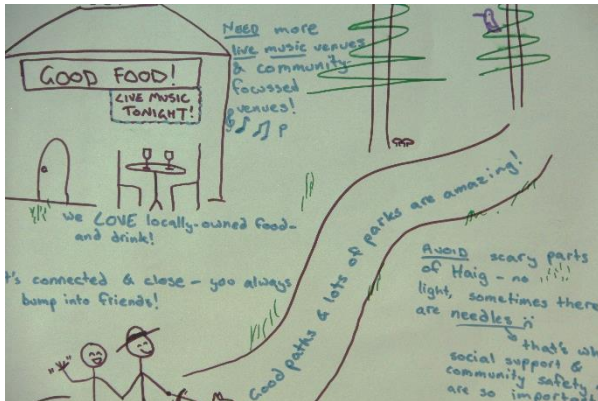 NEED more
live music venues
& community-
focussed
venues!
GOOD FOOD!
LIVE MUSIC
TONIGHT!
we LOVE locally-owned food-
and drink!
t's connected & close – you always
bump into friends!
Good paths & lots of parks are amazing!
AVOID scary parts
of Haig – no
light, sometimes there
are needles
that's wh
social support &
community safety
are so important